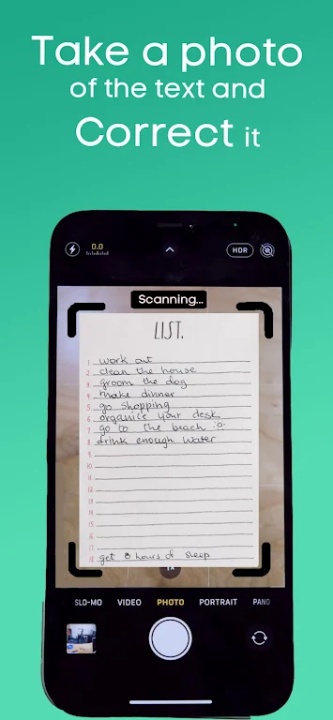 Take a photo
of the text and
Correct it
0.0
HDR
Scanning...
LIST.
1 work out
2 clean the house
3 groom the dog
4 make dinner
5 go shopping
6 organize your desk
7 go to the beach
8 drink enough water
9
10
11
12
13
14
15
16
17
18 get 8 hours of sleep
1x
SLO-MO VIDEO PHOTO PORTRAIT PANO